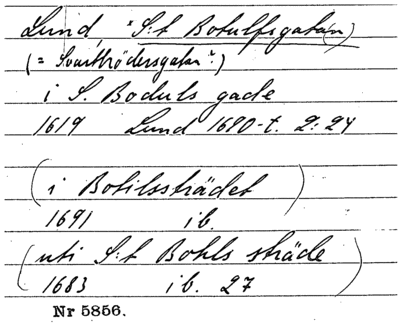 Lund, *S:t Botulfsgatan)
(= Svartbrödersgatan?)
i S. Boduls gade
1619 Lund 1690-t. 2:24
(i Botilssträdet)
1691 ib.
(uti S:t Bohls sträde)
1683 ib. 27
Nr 5856.